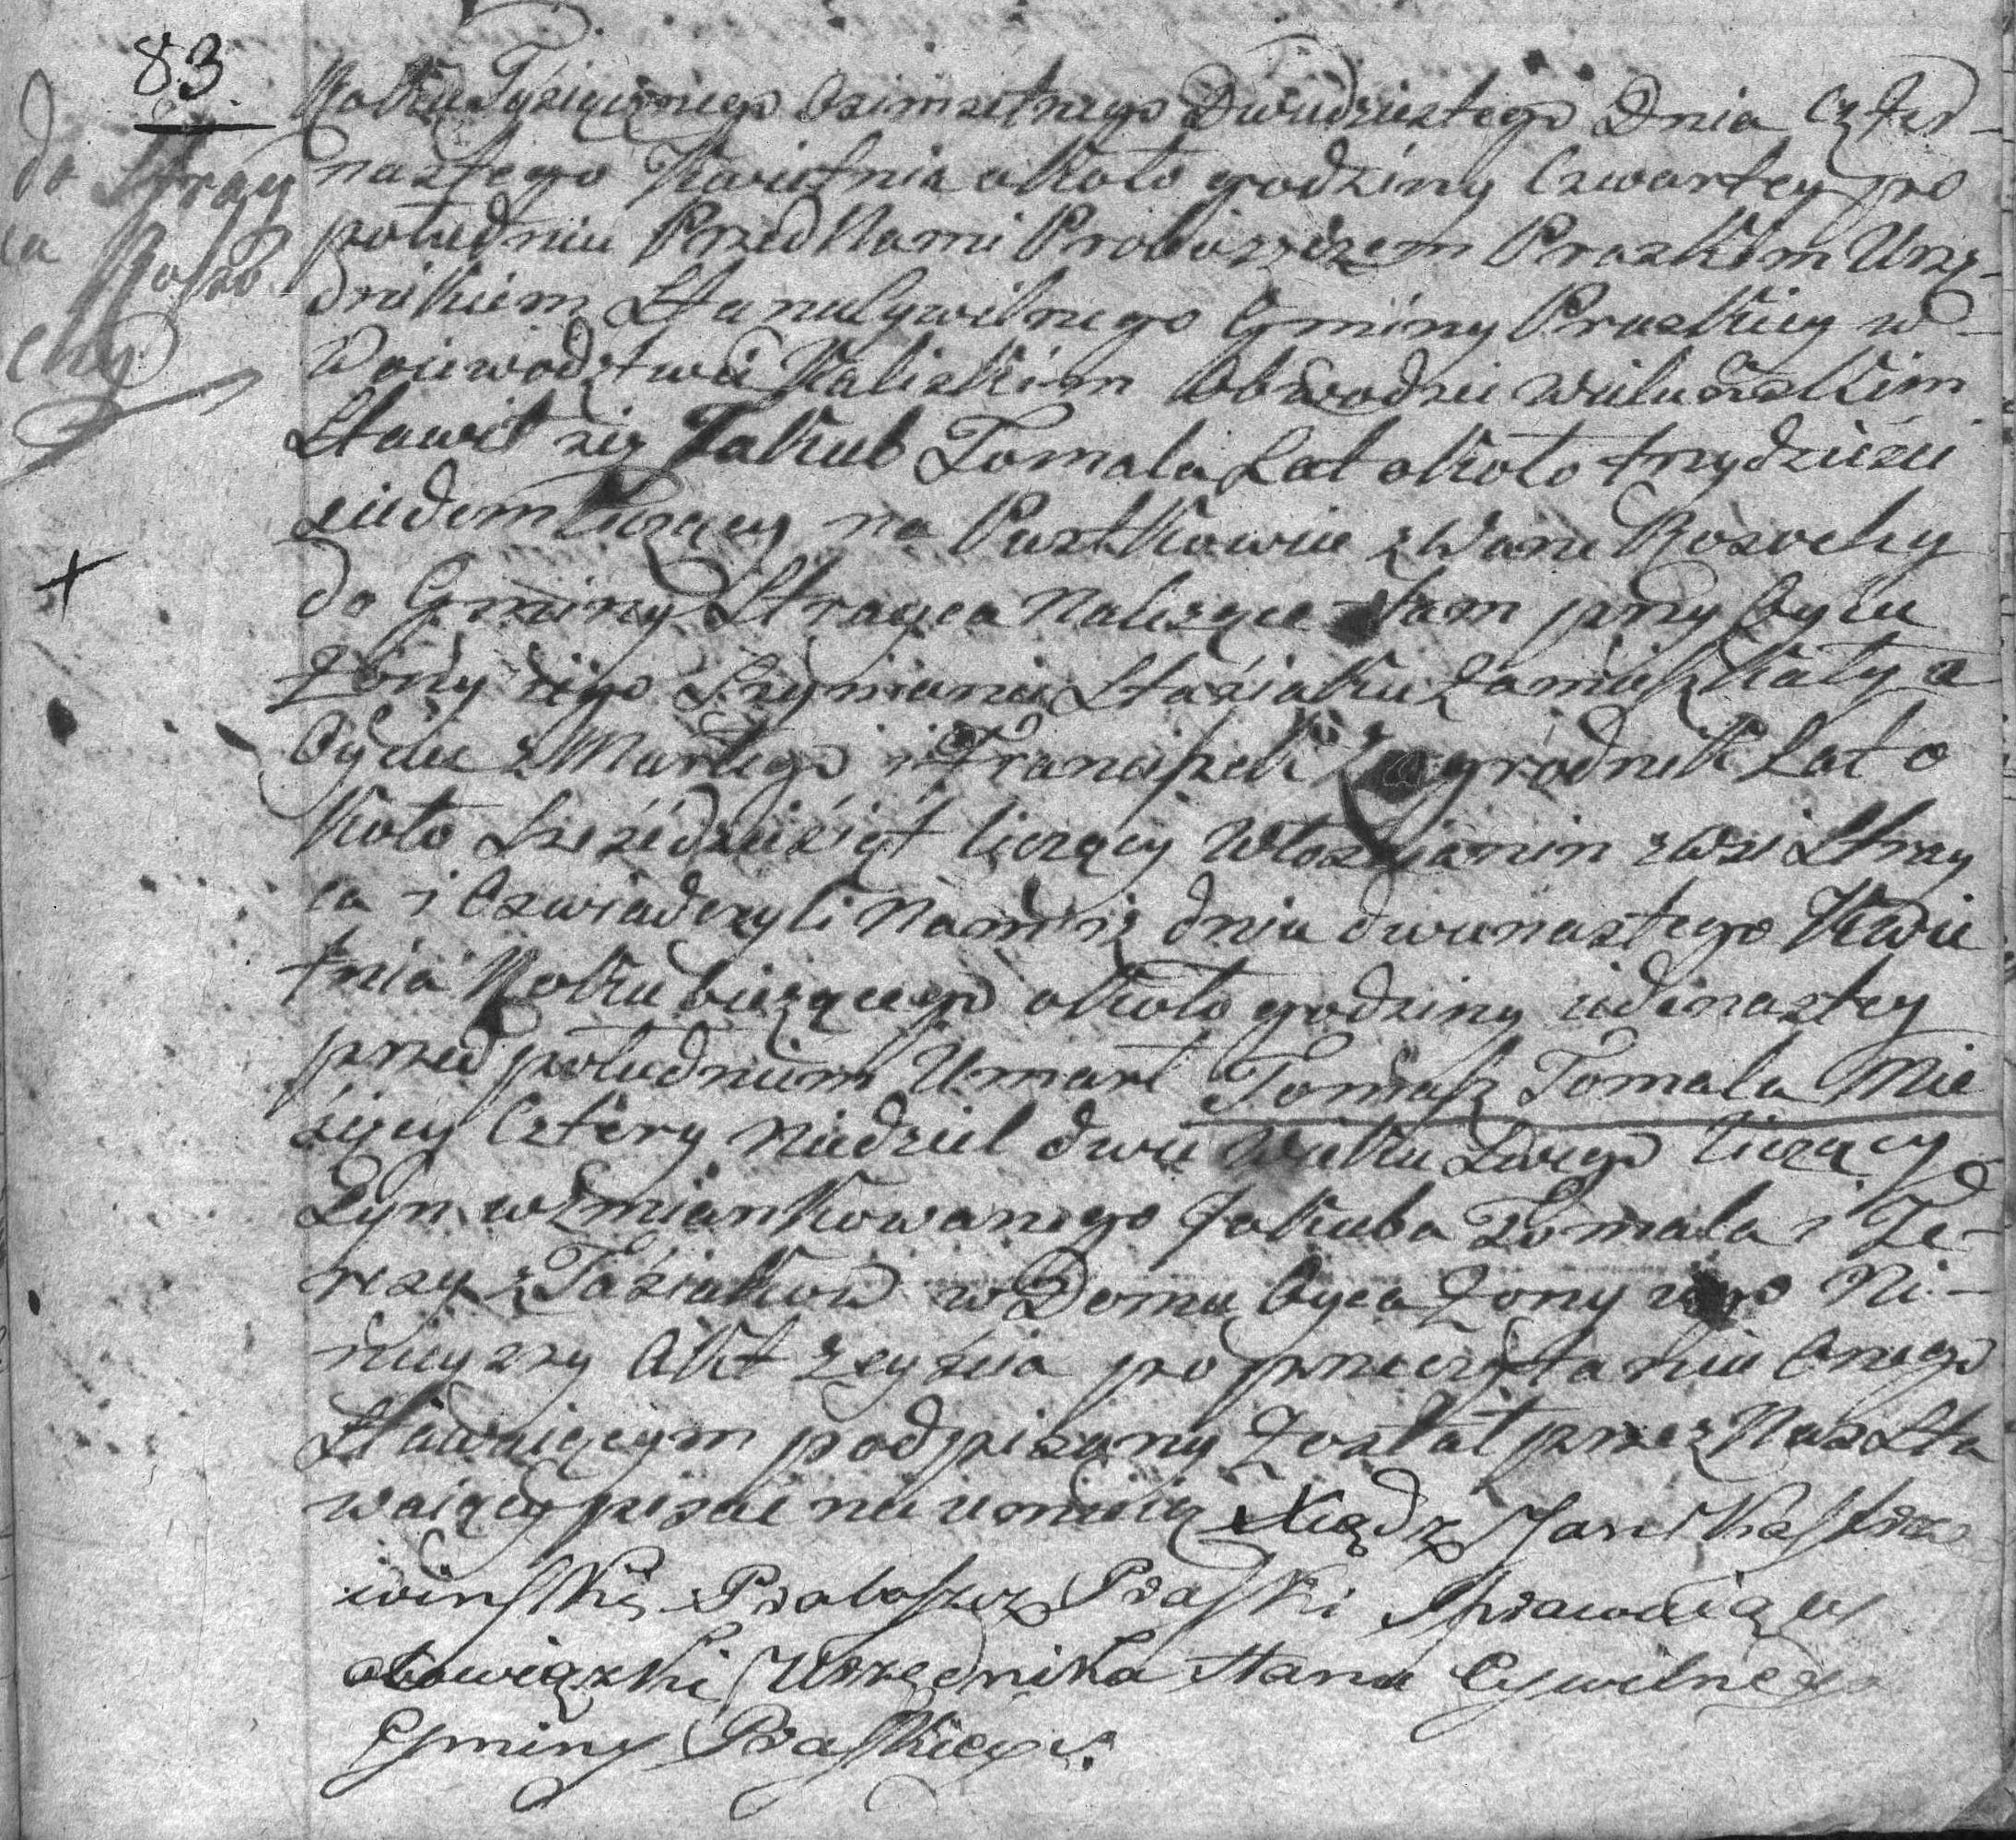 83
do Stray
ca Rosso
chy
Roku Tysiącznego Osimsetnego Dwudziestego Dnia Czter-
nastego Kwietnia około godziny Czwartey po
południu Przed Nami Proboszczem Praskim Urzę-
dnikiem Stanu Cywilnego Gminy Praskiey w
Woiewodztwie Kaliskim Obwodzie Wieluńskim
Stawił się Jakub Tomala Lat około trzydzieści
siedem liczący na Pustkowiu zwane Rosochy
do Gminy Strayca Należące tam przy Oycu
Zony iego Szymanie Stasiaku Zamieszkały a
Oycu zMarłego i Franciszek Zagrodnik Lat o
koło Sześćdziesiąt liczący Włościanin zwsi Stray
ca i Oswiadczyli Nam iż dnia dwunastego Kwie
tnia Roku bieżącego około godziny iedenastey
przed południem Umarł Tomasz Tomala Mie
sięcy Cztery Niedziel dwie Wieku Swego liczący
Syn wzmiankowanego Jakuba Tomala i Te-
resy z Tasiaków w Domu Oyca Zony iego Ni-
nieyszy Akt Zeyścia po przeczytaniu Onego
Stawaiącym podpisany Został przez Nas Sta
waiący pisać nie umieią Xiądz Jan
winski Proboszcz Praski Sprawuiący
obowiązki Urzędnika Stanu Cywilnego
Gminy Praskiey